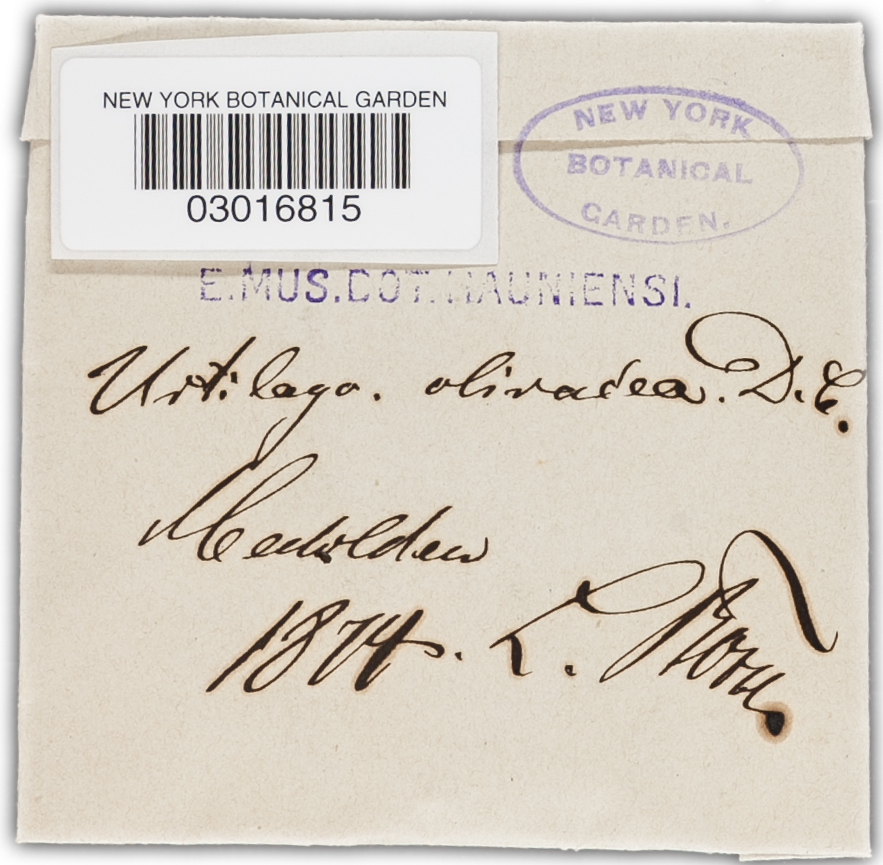 NEW YORK BOTANICAL GARDEN
03016815
NEW YORK
BOTANICAL
GARDEN.
E.MUS.BOT.HAUNIENSI.
Ustilago. olivacea. D.C.
1874. E.